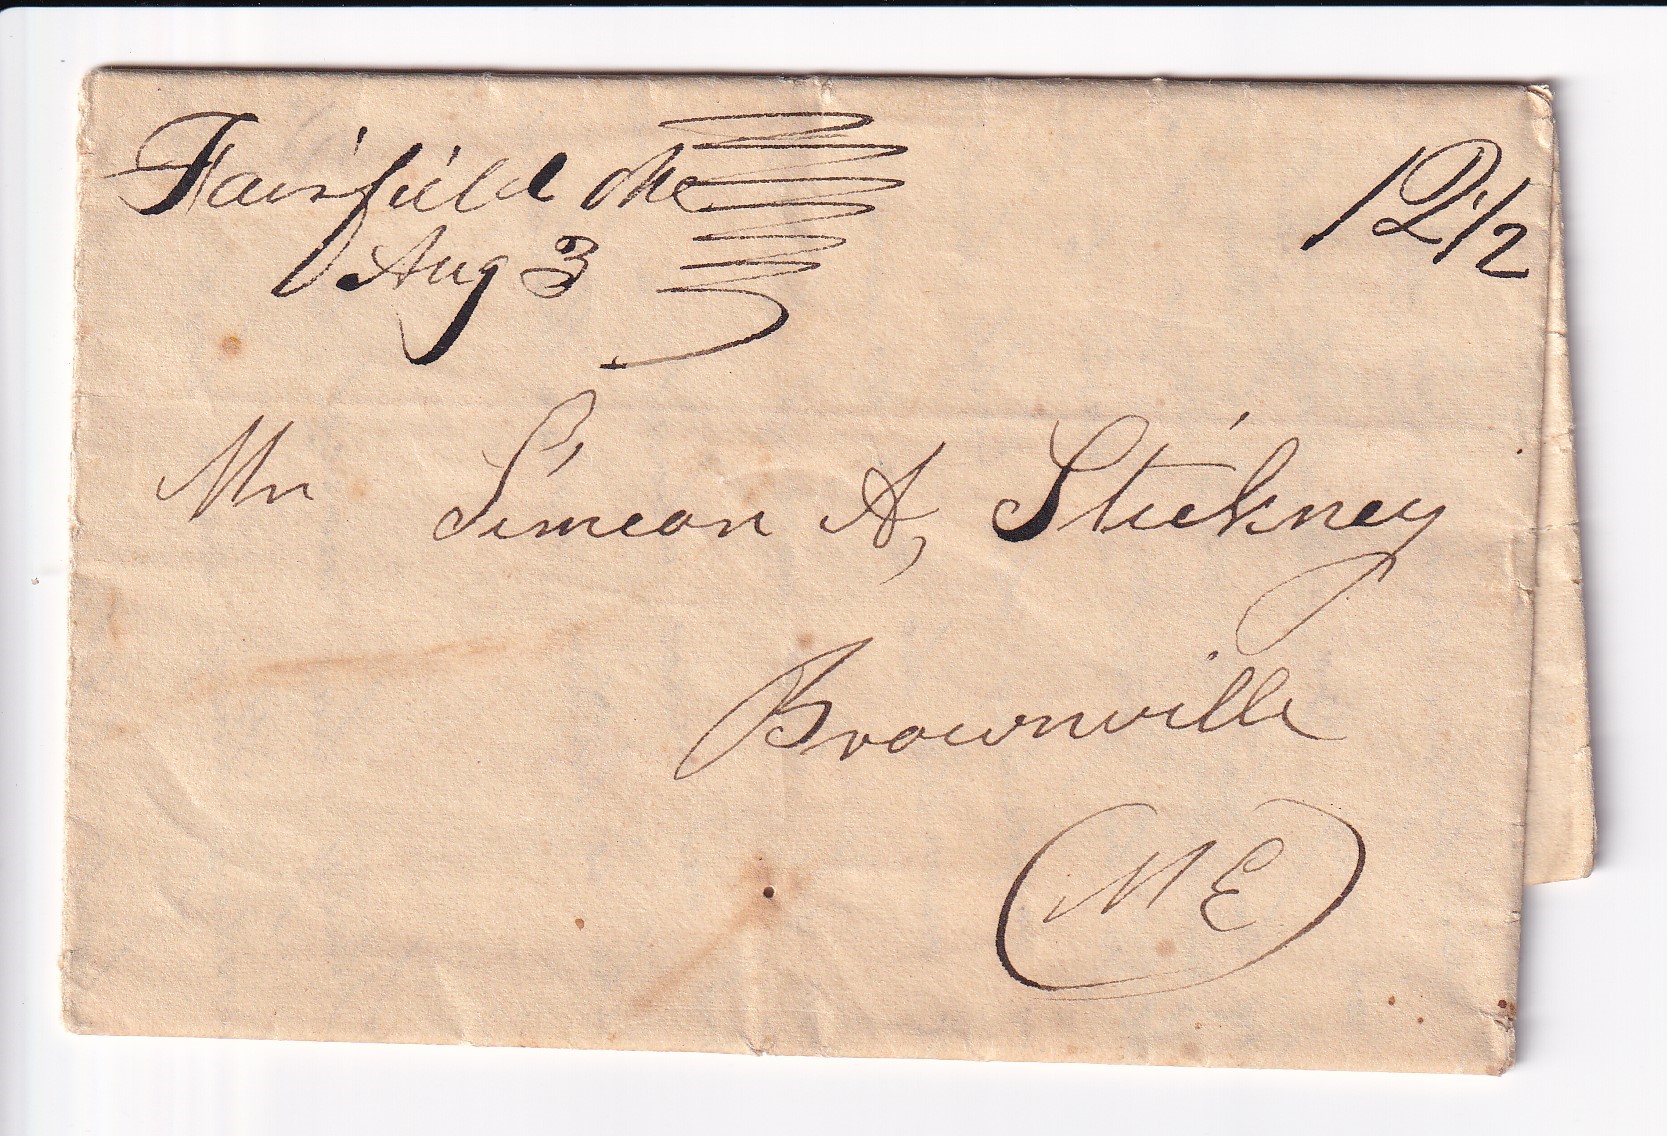 Fairfield Me
Aug 3
12 1/2
Mr Simeon A, Stickney
Brownville
ME